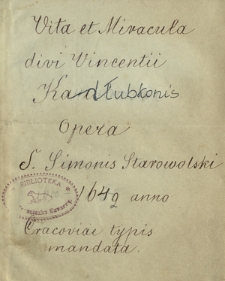 Vita et Miracula
divi Vincentii
Kadłubkonis
Opera
S. Simonis Starowolski
1642 anno
BIBLIOTEKA
Cracoviae typis
mandata.